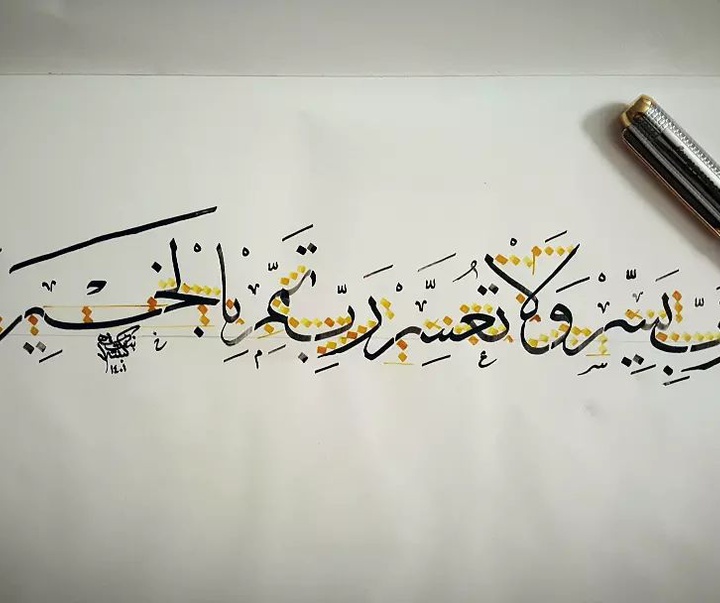 رَبِّ يَسِّرْ وَلَا تُعَسِّرْ رَبِّ تَمِّمْ بِالْخَيْرِ
١٤٠١